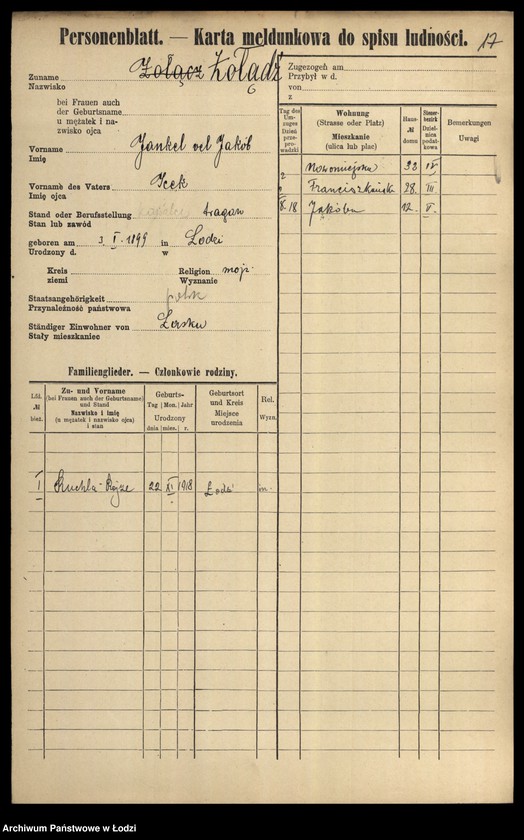 Personenblatt. — Karta meldunkowa do spisu ludności. 17
Zuname Żołącz Żołądź
Nazwisko 6
bei Frauen auch
der Geburtsname
u mężatek i na-
zwisko ojca
Vorname Jankel vel Jakób
Imię
Vorname des Vaters Icek
Imię ojca
Stand oder Berufsstellung tragarz
Stan lub zawód
geboren am 3 I. 1899 in Lodzi
Urodzony d. w
Kreis Religion mojż.
ziemi Wyznanie
Staatsangehörigkeit polsk
Przynależność państwowa
Ständiger Einwohner von Lasku
Stały mieszkaniec
Familienglieder. — Członkowie rodziny.
Lfd. № bież.
Zu- und Vorname
(bei Frauen auch der Geburtsname)
und Stand
Nazwisko i imię
(u mężatek i nazwisko ojca)
i stan
Geburts-
Tag Mon. Jahr
Urodzony
dnia mies. r.
Geburtsort
und Kreis
Miejsce
urodzenia
Rel.
Wyzn.
1 Ruchla-Rojze 22 XI 1918 Łódź m.
Zugezogen am
Przybył w d.
von
z
Tag des
Um-
zuges
Dzień
prze-
prowadzki
Wohnung
(Strasse oder Platz)
Mieszkanie
(ulica lub plac)
Haus-
№
domu
Steuer-
bezirk
Dziel-
nica
podat-
kowa
Bemerkungen
Uwagi
Nowomiejska 32 IV
Franciszkańsk 28 III
8.18 Jakóba 12. V.
Archiwum Państwowe w Łodzi